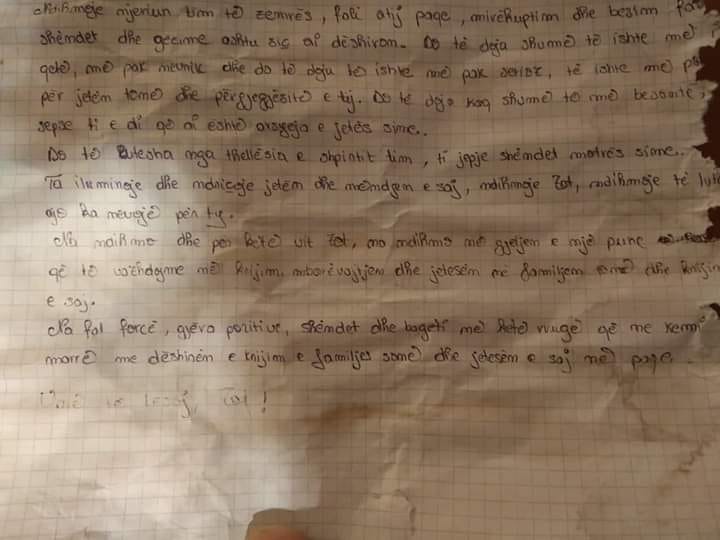 Ndihmoje njeriun tim të zemrës, fali atij paqe, mirëkuptim dhe besim
shëndet dhe gëzime ashtu siç ai dëshiron. Do të doja shumë të ishte më
qetë, më pak nevrik dhe do të doja të ishte më pak serioz, të ishte më
për jetën tonë dhe përgjegjësitë e tij. Do të doja kaq shumë të më besonte,
sepse ti e di që ai është arsyeja e jetës sime..
Do të lutesha nga thellësia e shpirtit tim, ti jepje shëndet motrës sime..
Ta iluminoje dhe ndriçoje jetën dhe mendjen e saj, ndihmoje Zot, ndihmoje të
ajo ka nevojë për ty.
Na ndihmo dhe për këtë vit Zot, na ndihmo në gjetjen e një pune
që të vazhdojmë në krijim, mbarëvajtjen dhe jetesën në familjen tonë dhe
e saj.
Na fal forcë, gjëra pozitive, shëndet dhe bagëti në këtë rrugë që ne kemi
marrë me dëshirën e krijim e familjes sonë dhe jetesën e saj në paqe.
Zot!